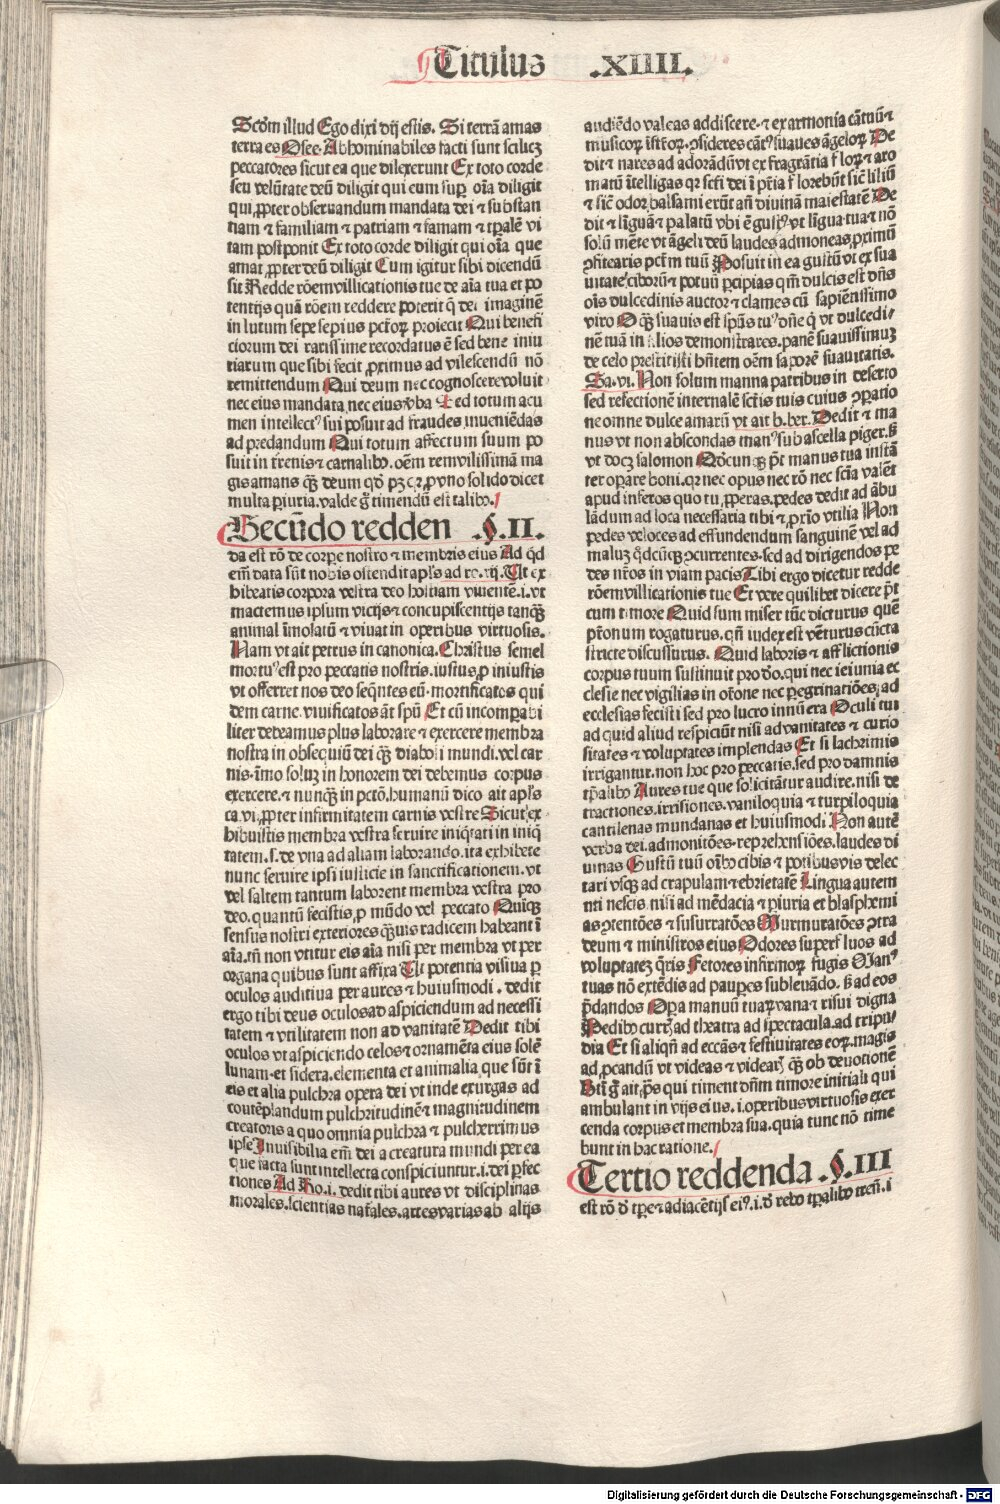 Titulus .XIIII.
Scd̄m illud Ego dixi dij estis. Si terrā amas
terra es Osee. Abhominabiles facti sunt scilicꝫ
peccatores sicut ea que dilexerunt Ex toto corde
seu volūtate deū diligit qui eum suꝑ oīa diligit
qui ꝓpter obseruandum mandata dei ⁊ substan
tiam ⁊ familiam ⁊ patriam ⁊ famam ⁊ tꝑalē vi
tam postponit Ex toto corde diligit qui oīa que
amat ꝓpter deū diligit Cum igitur sibi dicendū
sit Redde rōem villicationis tue de aīa tua et po
tentijs quā rōem reddere poterit ꝙ dei imaginē
in lutum sepe sepius pctōꝝ proiecit Qui benefi
ciorum dei rarissime recordatus ē sed bene iniu
riarum que sibi fecit ꝓximus ad vilescendū nō
remittendum Qui deum nec cognoscere voluit
nec eius mandata nec eius v̓ba Sed totum acu
men intellectꝰ sui posuit ad fraudes inueniēdas
ad predandum Qui totum affectum suum po
suit in t̓renis ⁊ carnalibꝰ. oēm rem vilissimā ma
gis amans qꝫ deum
multa ꝑiuria. valde g̊ timendū est talibꝰ.
Secūdo redden .§.II.
da est rō de corpe nostro ⁊ membris eius Ad qd̓
em̄ data sūt nobis ostendit apl̓s ad ro. xij. Ut ex
hibeatis corpora vestra deo hostiam viuentē .i. vt
mactemus ipsum vicijs ⁊ concupiscentijs tanqꝫ
animal īmolatū ⁊ viuat in operibus virtuosis.
Nam vt ait petrus in canonica. Christus semel
mortuꝰ est pro peccatis nostris. iustus ꝓ iniustis
vt offerret nos deo seq̄ntes eū. mortificatos qui
dem carne. viuificatos āt spū Et cū incomꝑabi
liter debeamus plus laborare ⁊ exercere membra
nostra in obsequiū dei qꝫ diaboli mundi. vel car
nis. īmo soluꝫ in honorem dei debemus corpus
exercere. ⁊ nunqꝫ in pctō. humanū dico ait apl̓s
ca. vi. ꝓpter infirmitatem carnis vestre Sicut ex
hibuistis membra vestra seruire iniqͥtati in iniqͥ
tatem. s. de vna ad aliam laborando. ita exhibete
nunc seruire ipsi iusticie in sanctificationem. vt
vel saltem tantum laborent membra vestra pro
deo. quantū fecistis ꝓ mūdo vel peccato Quīqꝫ
sensus nostri exteriores qꝫuis radicem habeant ī
aīa. tn̄ non vtitur eis aīa nisi per membra vt per
organa quibus sunt affixa Ut potentia visiua ꝑ
oculos auditiua per aures ⁊ huiusmodi. dedit
ergo tibi deus oculos ad aspiciendum ad necessi
tatem ⁊ vtilitatem non ad vanitatē Dedit tibi
oculos vt aspiciendo celos ⁊ ornamēta eius solē
lunam. et sidera. elementa et animalia que sūt ī
eis et alia pulchra opera dei vt inde exurgas ad
coutēplandum pulchritudinē ⁊ magnitudinem
creatoris a quo omnia pulchra ⁊ pulcherrimus
ipse Inuisibilia em̄ dei a creatura mundi per ea
que facta sunt intellecta conspiciuntur. i. dei ꝑfec
tiones Ad Ro. i. dedit tibi aures vt disciplinas
morales. scientias nat̓ales. artes varias ab alijs
audiēdo valeas addiscere. ⁊ ex armonia cātuū ⁊
musicoꝝ īstr̓oꝝ. ꝯsideres cātꝰ suaues āgeloꝝ De
dit ⁊ nares ad adorādū vt ex fragrātia f̓loꝝ ⁊ aro
matū ītelligas qꝛ scti dei ī pr̄ia f̓lorebūt sic̄ liliū
⁊ sic̄ odor balsami erūt an̄ diuinā maiestatē De
dit ⁊ līguā ⁊ palatū vbi ē gustꝰ vt līgua tua ⁊ nō
solū mēte vt āgeli deū laudes admoneas ꝓximū
ꝯfitearis pctm̄ tuū Posuit in ea gustū vt ex sua
uitate ciborū ⁊ potuū ꝑcipias qm̄ dulcis est dn̄s
oīs dulcedinis auctor ⁊ clames cū sapiēnissimo
viro O qꝫ suauis est spūs tuꝰ dn̄e ꝙ vt dulcedi
nē tuā in filios demonstrares. panē suauissimuꝫ
de celo prestitisti hn̄tem oēm saporē suauitatis.
Sa. vi. Non solum manna patribus in deserto
sed refectionē internalē sctis tuis cuius ꝯꝑatio
ne omne dulce amarū vt ait b. ber. Dedit ⁊ ma
nus vt non abscondas manꝰ sub ascella piger. sꝫ
vt docꝫ salomon Qd̓cunqꝫ pt̄ manus tua instā
ter oꝑare boni. qꝛ nec opus nec rō nec scīa valēt
apud inferos quo tu ꝓperas. pedes dedit ad ābu
lādum ad loca necessaria tibi ⁊ ꝓxīo vtilia Non
pedes veloces ad effundendum sanguinē vel ad
maluꝫ qd̓cūqꝫ ꝯcurrentes. sed ad dirigendos pe
des nr̄os in viam pacis Tibi ergo dicetur redde
rōem villicationis tue Et vere quilibet dicere pt̄
cum timore Quid sum miser tūc dicturus quē
pr̄onum rogaturus. qn̄ iudex est vēturus cūcta
stricte discussurus. Quid laboris ⁊ afflictionis
corpus tuum sustinuit pro deo. qui nec ieiunia ec
clesie nec vigilias in or̄one nec peregrinatiōes ad
ecclesias fecisti sed pro lucro innūera Oculi tui
ad quid aliud respiciūt nisi ad vanitates ⁊ curio
sitates ⁊ voluptates implendas Et si lachrimis
irrigantur. non hoc pro peccatis. sed pro damnis
tꝑalibꝰ Aures tue que solicitātur audire. nisi de
tractiones. irrisiones. vaniloquia ⁊ turpiloquia
cantilenas mundanas et huiusmodi. Non autē
verba dei. admonitōes. reprehensiōes. laudes di
uinas Gustū tuū oībꝰ cibis ⁊ potibus vis delec
tari vsqꝫ ad crapulam ⁊ ebrietatē Lingua autem
nti nescis. nisi ad mēdacia ⁊ ꝑiuria et blasphemi
as ꝯtentōes ⁊ susurratōes Murmuratōes ꝯtra
deum ⁊ ministros eius Odores superf̓luos ad
voluptateꝫ qͥris Fetores infirmoꝝ fugis Manꝰ
tuas nō extēdis ad pauꝑes subleuādo. sꝫ ad eos
p̄dandos Oꝑa manuū tuaꝝ vana ⁊ risui digna
Pedibꝰ currꝭ ad theatra ad spectacula. ad tripu
dia Et si aliqn̄ ad ecc̄as ⁊ festiuitates eoꝝ. magis
ad ꝓcandū vt videas ⁊ videarꝭ qꝫ ob deuotionē
Bt̄i g̊ ait ꝓs̄ qui timent dn̄m timore initiali qui
ambulant in vijs eius. i. operibus virtuosis exer
cenda corpus et membra sua. quia tunc nō time
bunt in hac ratione.
Tertio reddenda .§.III
est rō d̓ tꝑe ⁊ adiacētijs eiꝰ. i. d̓ rebꝰ tꝑalibꝰ
Digitalisierung gefördert durch die Deutsche Forschungsgemeinschaft - DFG